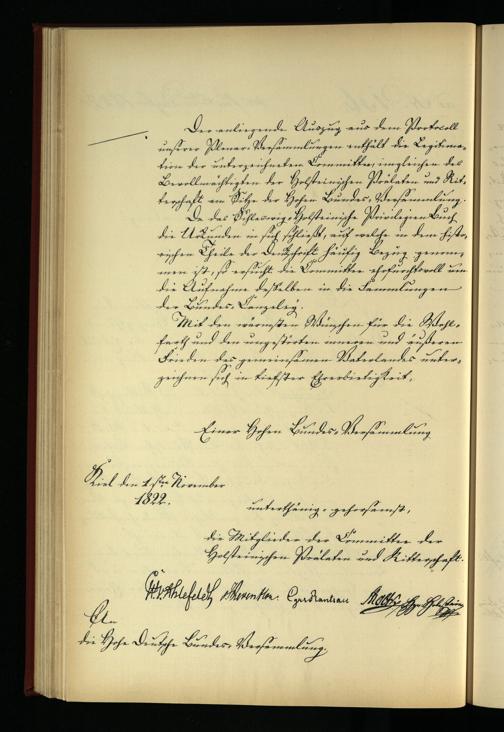 Der anliegende Auszug aus dem Protocoll
unserer Plenar-Versammlungen enthält die Legitima-
tion der unterzeichneten Committee, imgleichen des
Bevollmächtigten der Holsteinischen Prälaten und Rit-
terschaft am Sitze der Hohen Bundes-Versammlung.
Da das Schleswig-Holsteinische Privilegien Buch
die Urkunden in sich schließt, auf welche in dem histo-
rischen Theile der Denkschrift häufig Bezug genom-
men ist, so ersucht die Committee ehrfurchtsvoll um
die Aufnahme desselben in die Sammlungen
der Bundes-Canzeley.
Mit den wärmsten Wünschen für die Wohl-
farth und den ungestörten inneren und äußeren
Frieden des gemeinsamen Vaterlandes unter-
zeichnen sich in tiefster Ehrerbietigkeit,
Einer Hohen Bundes-Versammlung
Kiel den November
1822.
unterthänig-gehorsamst,
die Mitglieder der Committee der
Holsteinischen Prälaten und Ritterschaft.
Ahlefeldt Rantzau Holstein
An
die Hohe Deutsche Bundes-Versammlung.